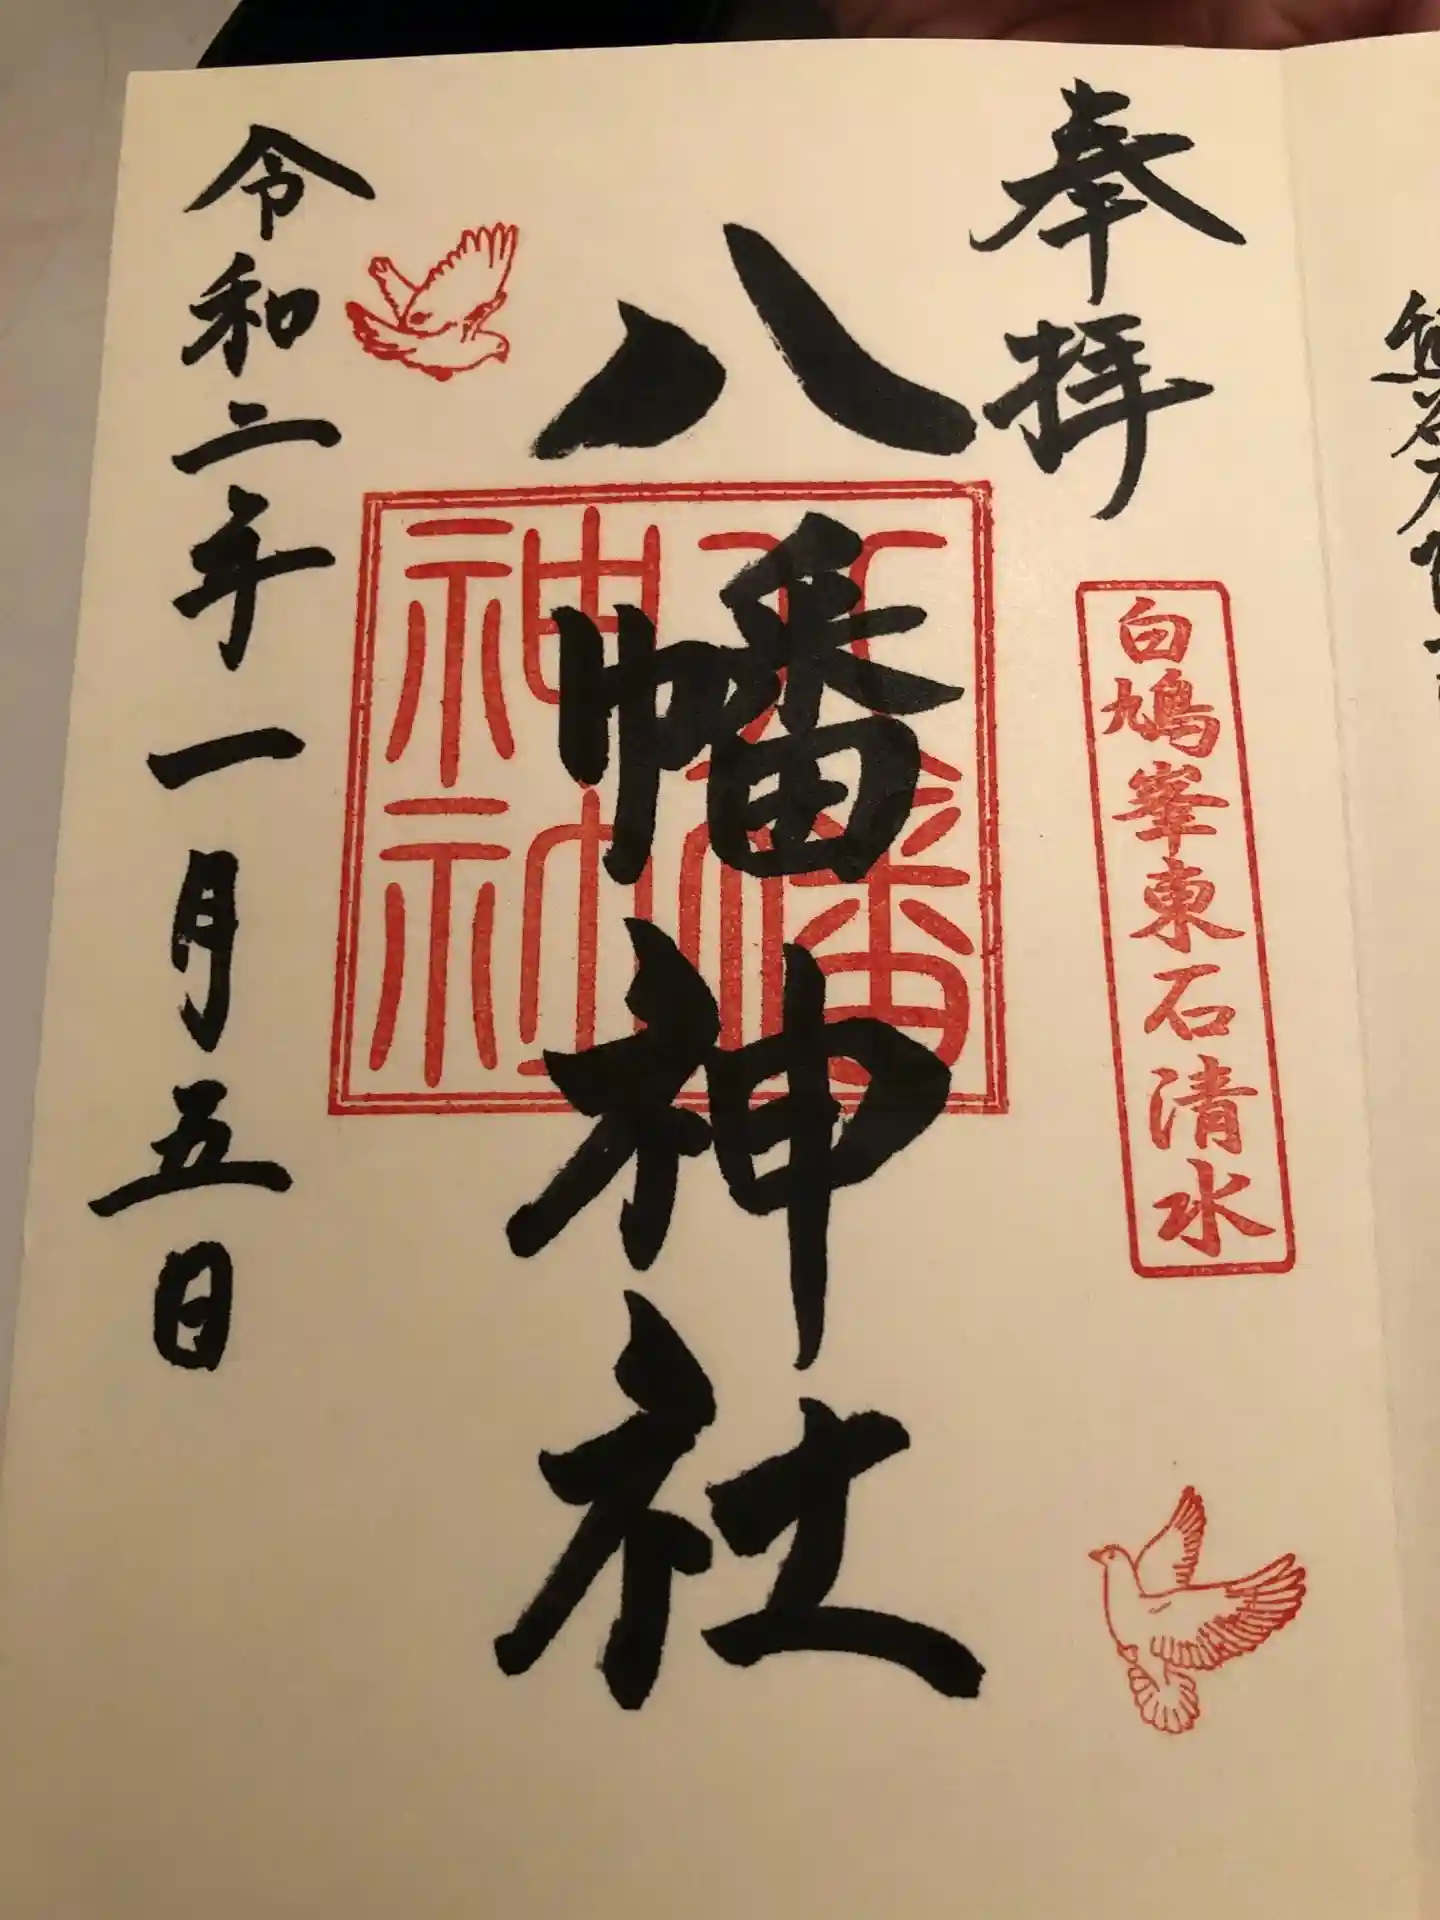 奉拝
白鳩峯東石清水
八幡神社
八幡神社
令和二年一月五日